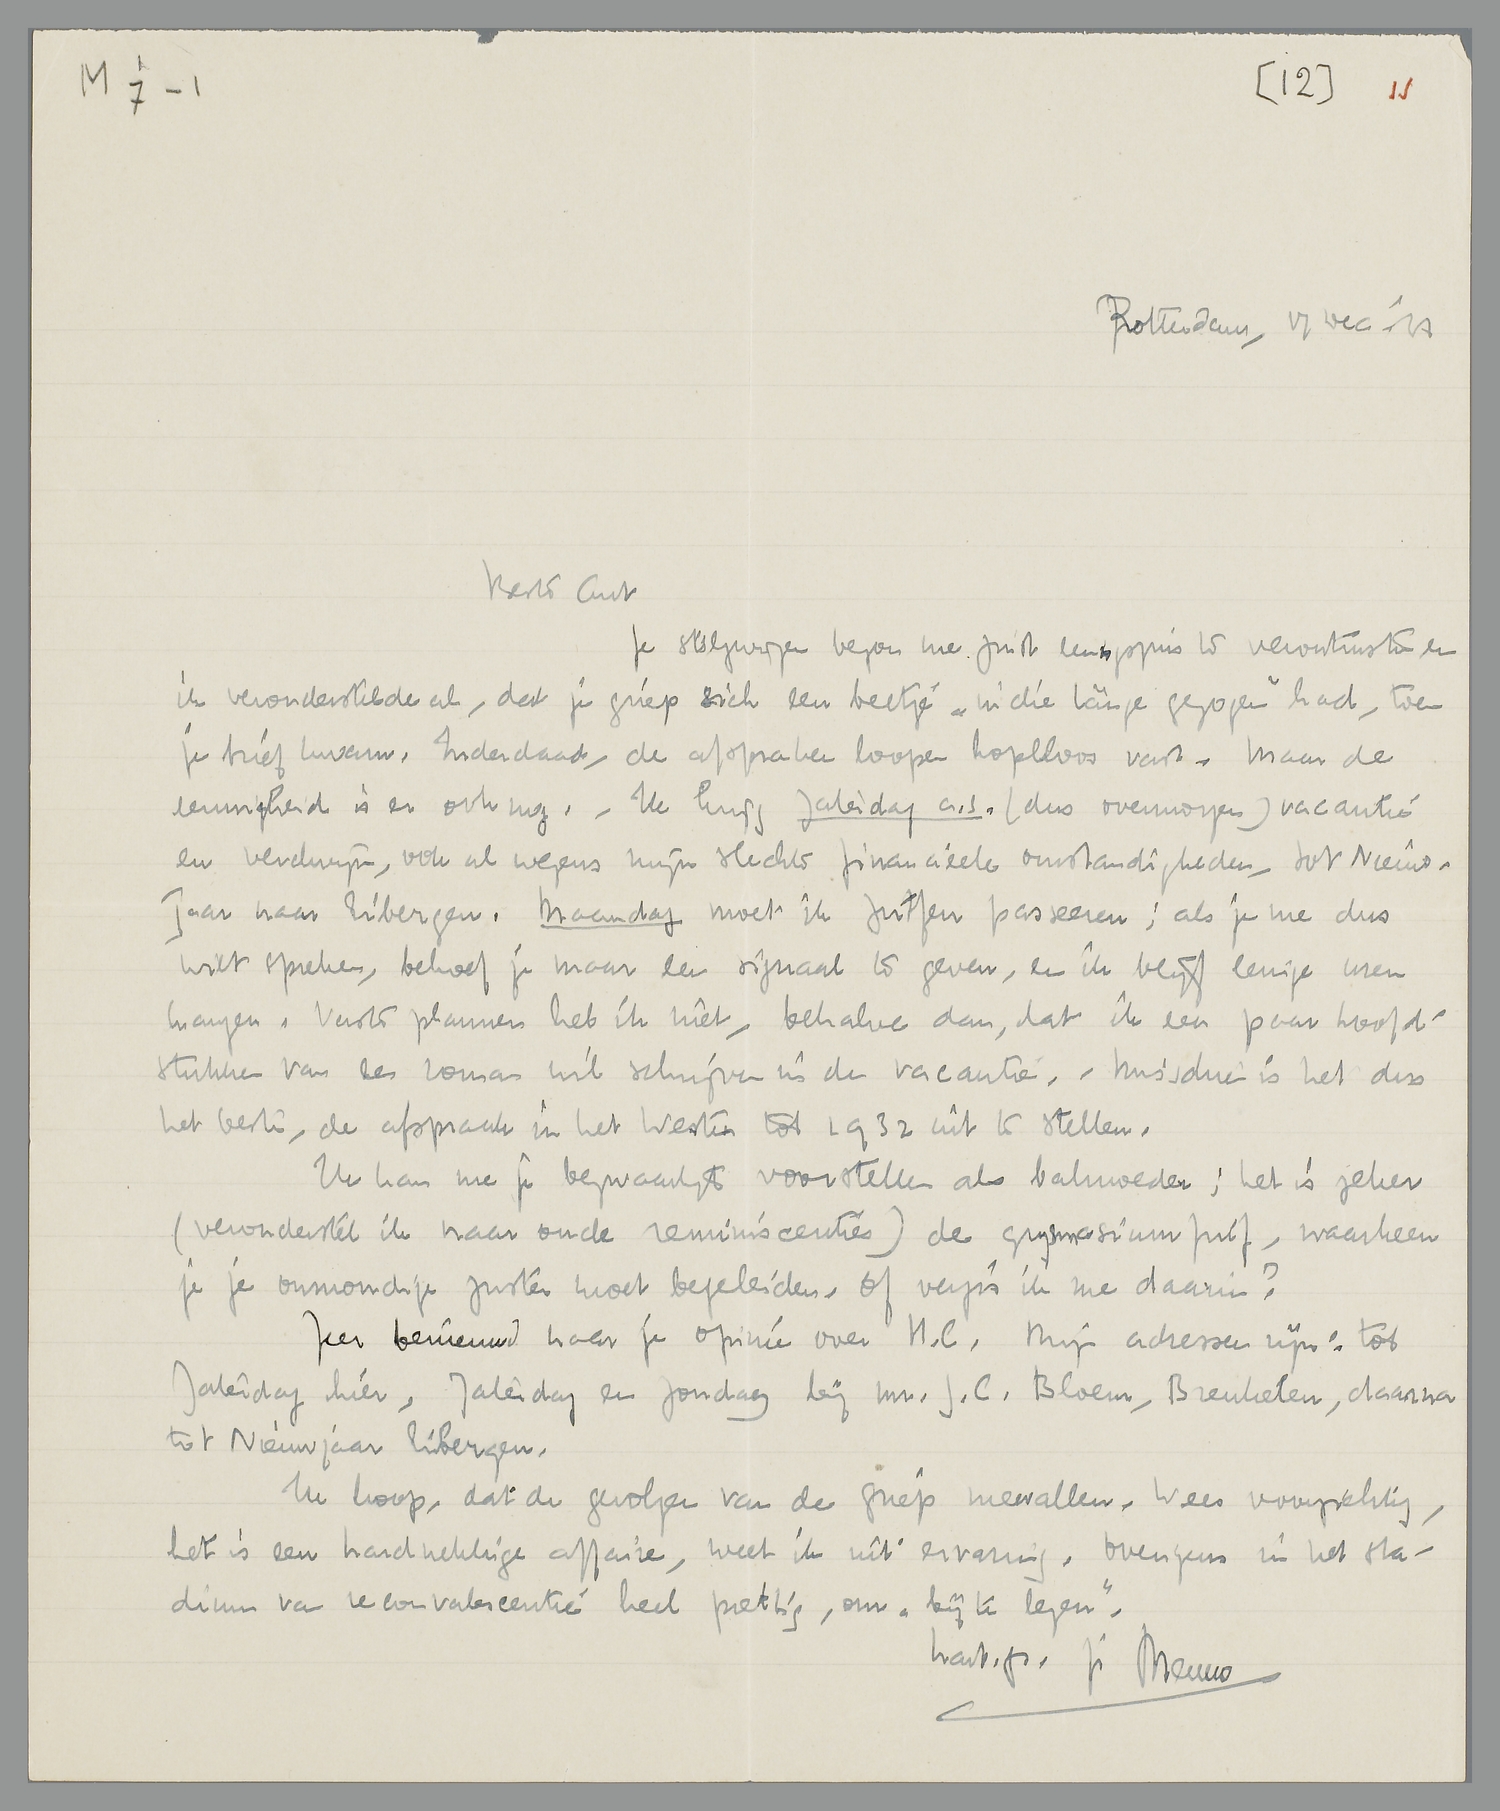 M 7 - 1
[12] 11
Rotterdam, 17 Dec '31
Beste Ant
Je stilzwijgen begon me juist eenigszins te verontrusten en
ik veronderstelde al, dat je griep zich een beetje „in die Länge gezogen" had, toen
je brief kwam. Inderdaad, de afspraken loopen hopeloos vast. Maar de
eeuwigheid is er ook nog. - Ik krijg Zaterdag a.s. (dus overmorgen) vacantie
en verdwijn, ook al wegens mijn slechte financieele omstandigheden, tot Nieuw-
Jaar naar Eibergen. Maandag moet ik Zutfen passeeren; als je me dus
wilt spreken, behoef je maar een signaal te geven, en ik blijf eenige uren
hangen. Vaste plannen heb ik niet, behalve dan, dat ik een paar hoofd-
stukken van een roman wil schrijven in de vacantie. - Misschien is het dus
het beste, de afspraak in het Westen tot 1932 uit te stellen.
Ik kan me je bezwaarlijk voorstellen als balmoeder; het is zeker
(veronderstel ik naar oude reminiscenties) de gymnasiumfuif, waarheen
je je onmondige zuster moet begeleiden. Of vergis ik me daarin?
Zeer benieuwd naar je opinie over H.C. Mijn adressen zijn: tot
Zaterdag hier, Zaterdag en Zondag bij mr. J.C. Bloem, Breukelen, daarna
tot Nieuwjaar Eibergen.
Ik hoop, dat de gevolgen van de griep meevallen. Wees voorzichtig,
het is een hardnekkige affaire, weet ik uit ervaring. Overigens in het sta-
dium van reconvalescentie heel prettig, om „bij te lezen".
hart. gr. je Menno